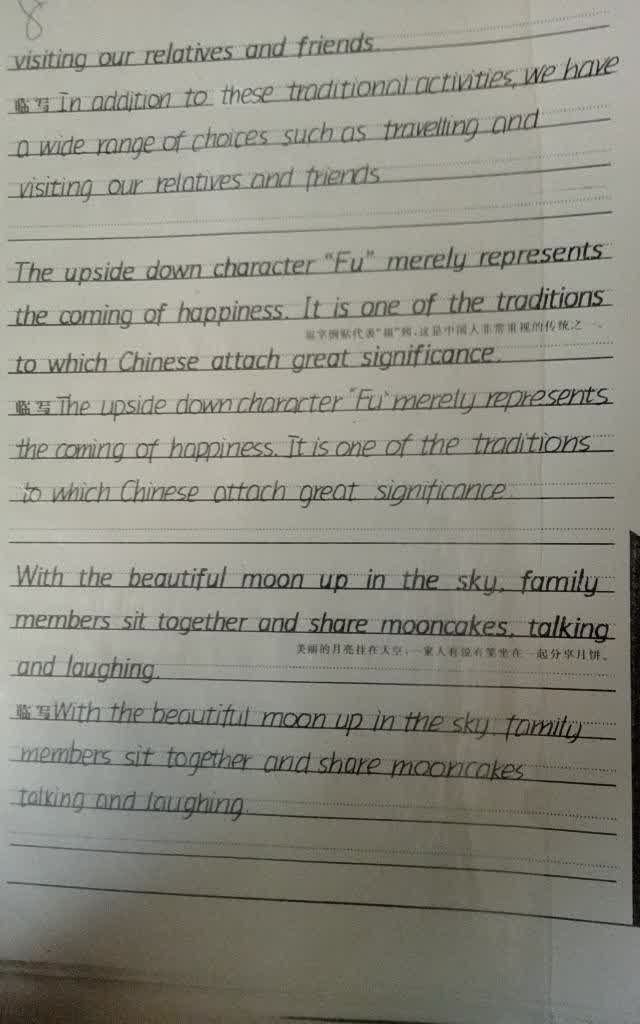 8
visiting our relatives and friends.
临写 In addition to these traditional activities, we have
a wide range of choices such as travelling and
visiting our relatives and friends
The upside down character "Fu" merely represents
the coming of happiness. It is one of the traditions
福字倒贴代表"福"到,这是中国人非常重视的传统之一。
to which Chinese attach great significance.
临写 The upside down character "Fu" merely represents
the coming of happiness. It is one of the traditions
to which Chinese attach great significance.
With the beautiful moon up in the sky, family
members sit together and share mooncakes, talking
美丽的月亮挂在天空,一家人有说有笑坐在一起分享月饼。
and laughing.
临写 With the beautiful moon up in the sky, family
members sit together and share mooncakes
talking and laughing.